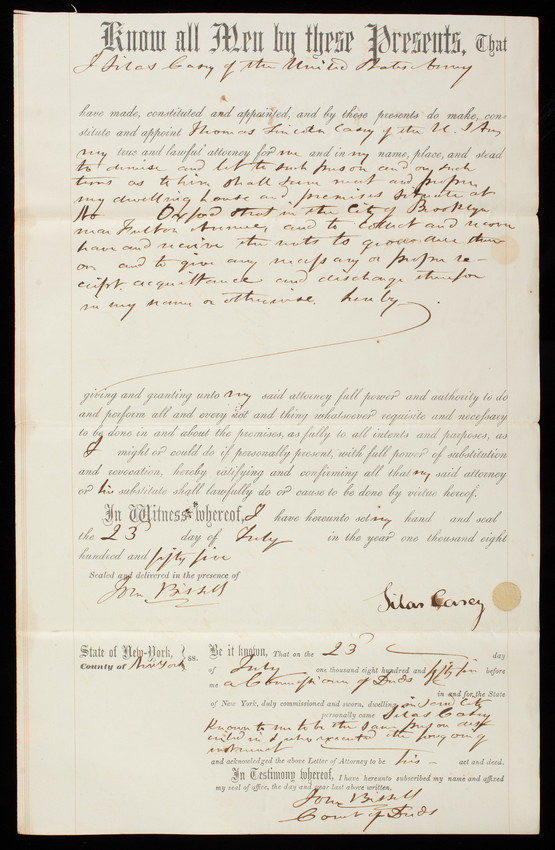 Know all Men by these Presents, That
I Silas Casey of the United States Army
have made, constituted and appointed, and by these presents do make, con-
stitute and appoint Thomas Lincoln Casey of the U. S Army
my true and lawful attorney for me and in my name, place, and stead
to demise and let to such person and on such
terms as to him shall seem meet and proper
my dwelling house and premises situate at
No Oxford Street in the City of Brooklyn
near Fulton Avenue, and to collect and recover
have and receive the rents to grow due there
on and to give any necessary or proper re-
ceipt acquittance and discharge therefor
in my name or otherwise. hereby
giving and granting unto my said attorney full power and authority to do
and perform all and every act and thing whatsoever requisite and necessary
to be done in and about the premises, as fully to all intents and purposes, as
I might or could do if personally present, with full power of substitution
and revocation, hereby ratifying and confirming all that my said attorney
or his substitute shall lawfully do or cause to be done by virtue hereof.
In Witness whereof, I have hereunto set my hand and seal
the 23d day of July in the year one thousand eight
hundred and fifty five
Sealed and delivered in the presence of
John Bissell
Silas Casey
State of New-York, } ss.
County of New York
Be it known, That on the 23d day
of July one thousand eight hundred and fifty five before
me a Commissioner of Deeds
in and for the State
of New York, duly commissioned and sworn, dwelling in said City
personally came Silas Casey
Known to me to be the same person des
cribed in & who executed the foregoing
instrument
and acknowledged the above Letter of Attorney to be his act and deed.
In Testimony whereof, I have hereunto subscribed my name and affixed
my seal of office, the day and year last above written.
John Bissell
Comr of Deeds